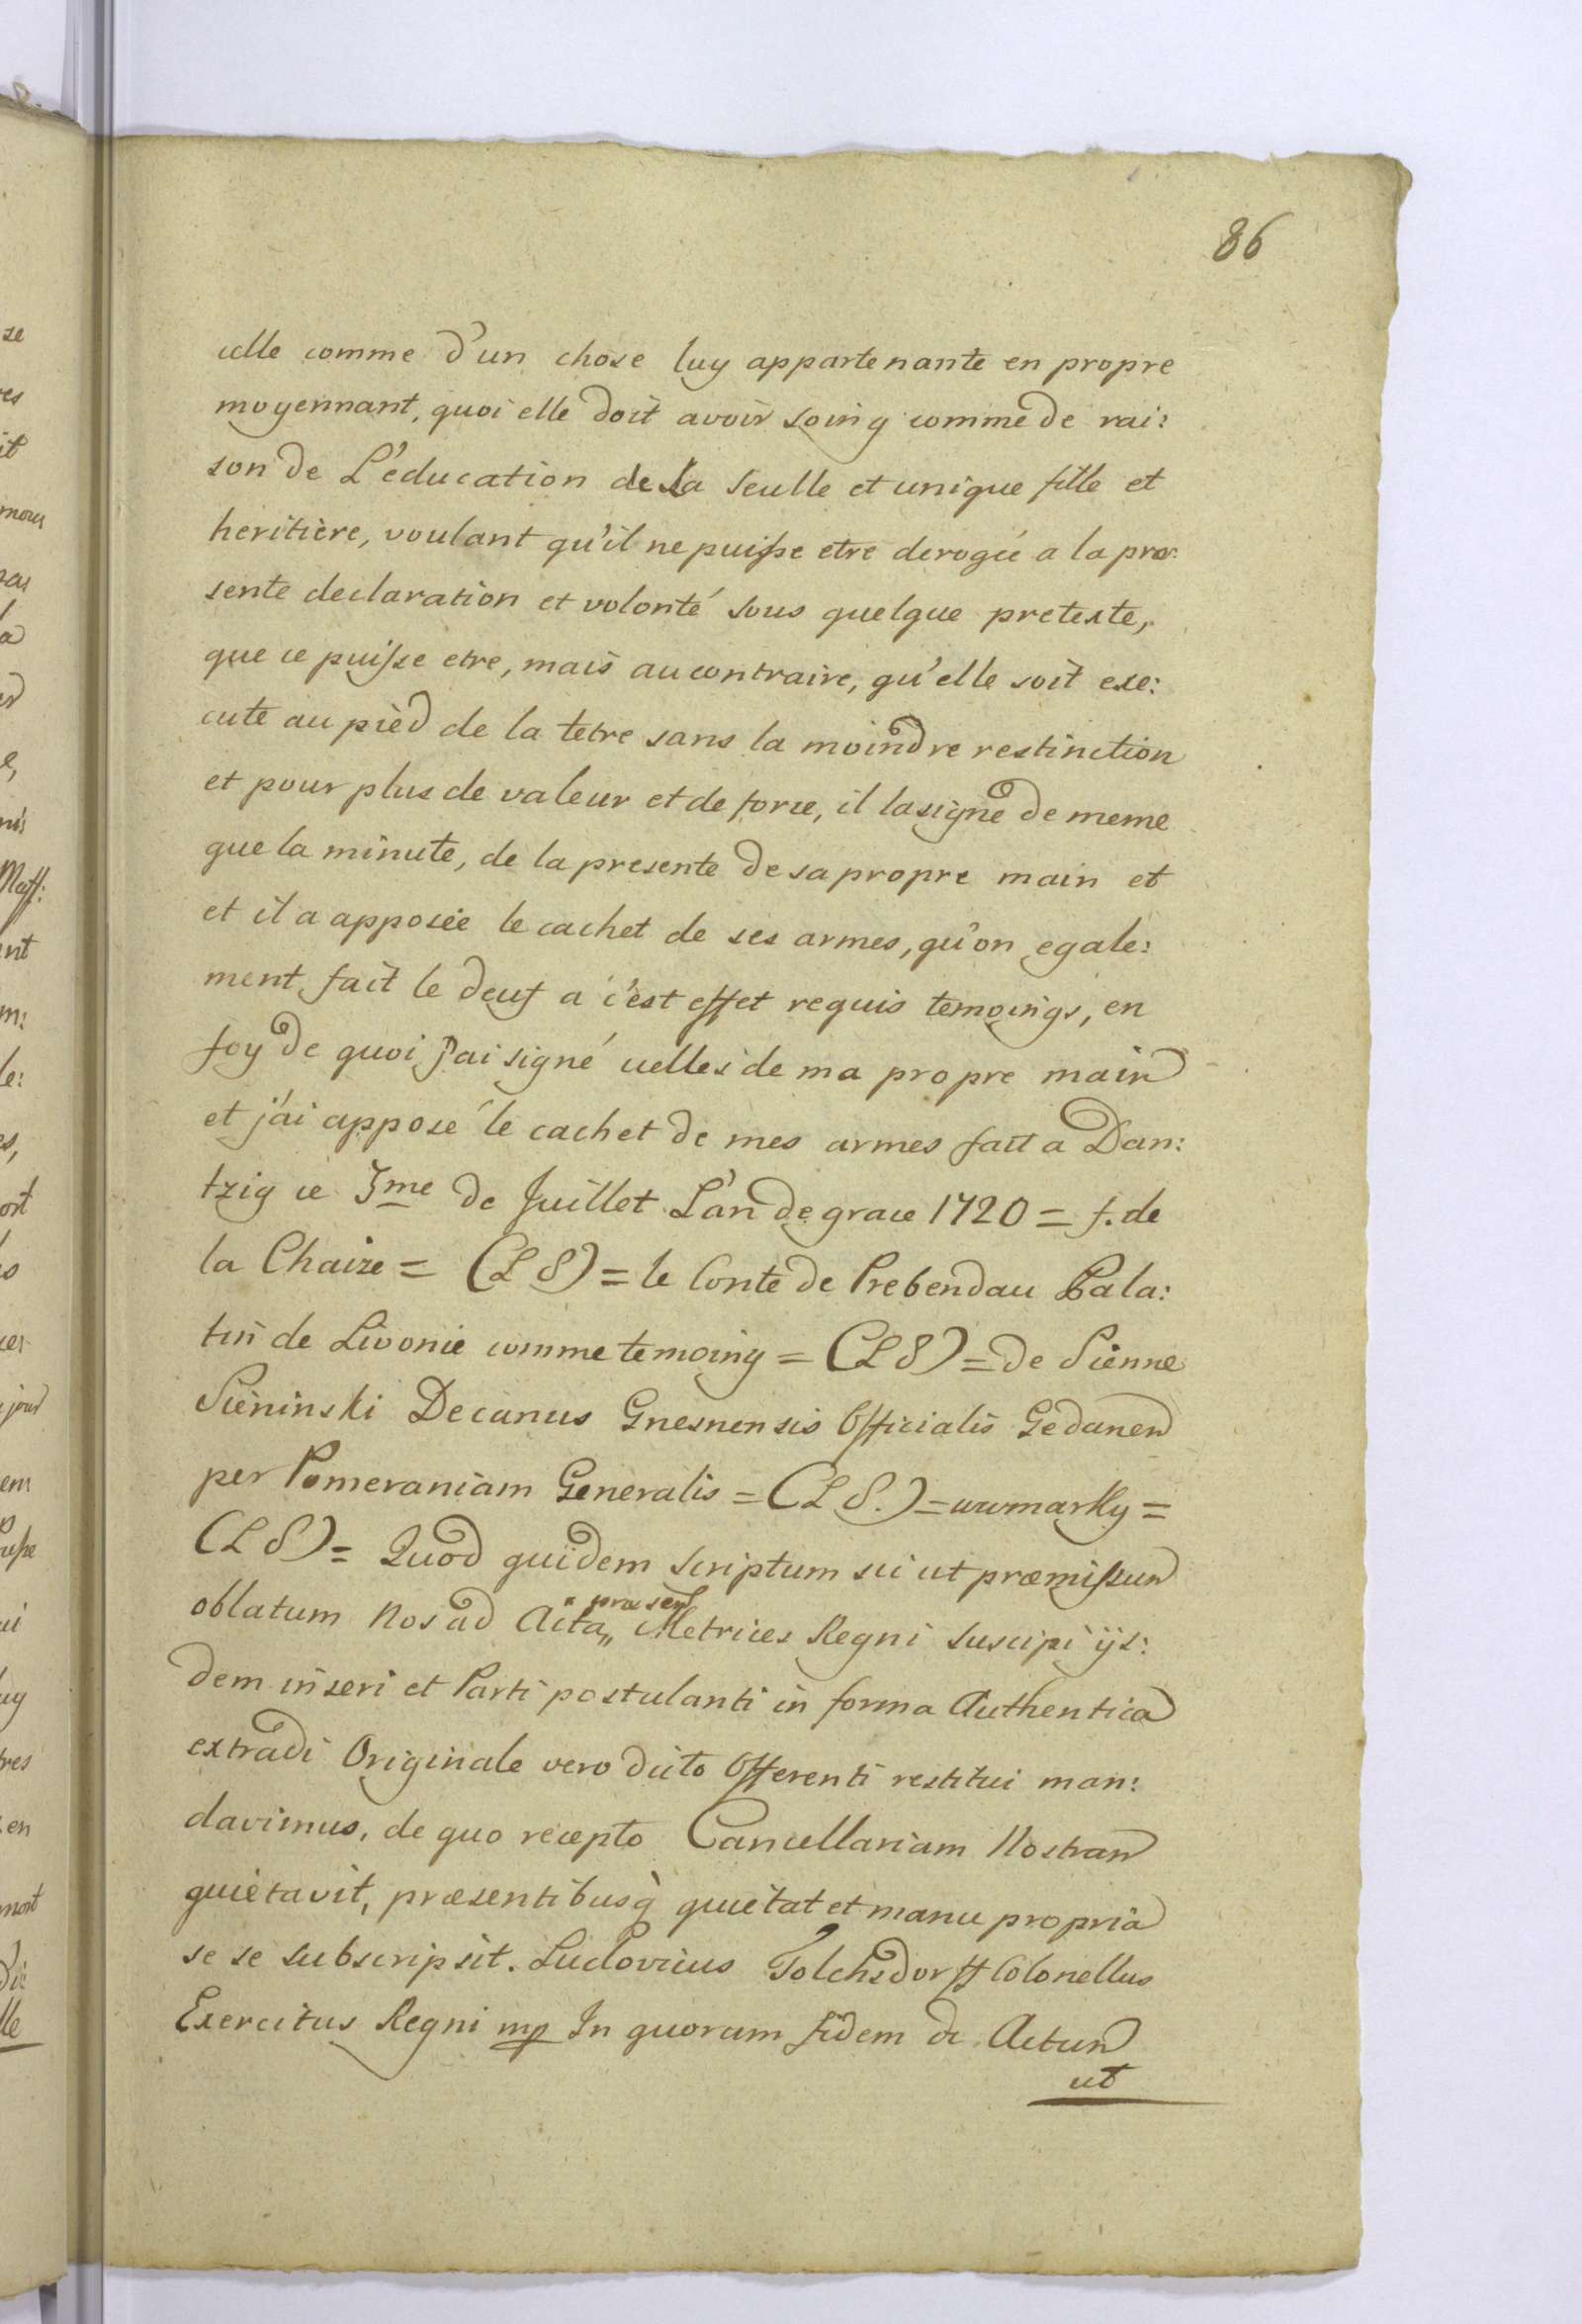 86
celle comme d'un chose luy appartenante en propre
moyennant, quoi elle doit avoir soing comme de rai:
son de L'education de sa seulle et unique fille et
heritière, voulant qu'il ne puisse etre derogée a la pre:
sente declaration et volonté sous quelque pretexte,
que ce puisse etre, mais au contraire, qu'elle soit exe:
cute au pièd de la tetre sans la moindre restinction
et pour plus de valeur et de force, il la signé de meme
que la minute, de la presente de sa propre main et
et il a apposée le cachet de ses armes, qu'on egale:
ment fait le deux a c'est effet requis temoings, en
foy de quoi j'ai signé celles de ma propre main
et j'ai apposé le cachet de mes armes fait a Dan:
tzig ce 3me de Juillet L'an de grace 1720 = f. de
la Chaize = (L S) = le Conte de Prebendau Pala:
tin de Livonie comme temoing = (L S) = de Sienne
Sieninski Decanus Gnesnensis Officialis Gedanen
per Pomeraniam Generalis = (L S.) =
(L S) = Quod quidem scriptum sic ut præmissum
præsen
oblatum Nos ad Acta,, Metrices Regni suscipi ijs:
dem inseri et Parti postulanti in forma Authentica
extradi Originale vero dicto Offerenti restitui man:
davimus, de quo recepto Cancellariam Nostram
quietavit, præsentibusq quietat et manu propria
se se subscripsit. Ludovicus Tolchsdorff Colonellus
Exercitus Regni mp In quorum fidem &c Actum
ut